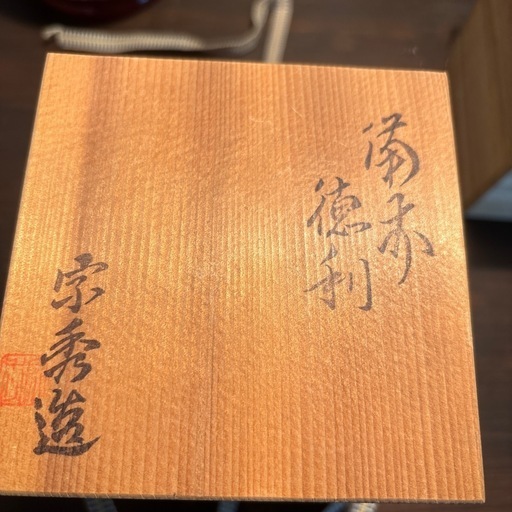 備前
徳利
宗秀造